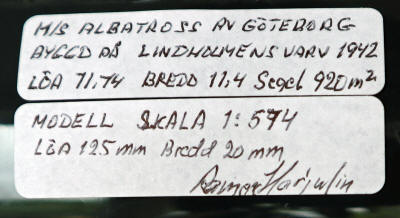 M/S ALBATROSS AV GÖTEBORG
BYGGD PÅ LINDHOLMENS VARV 1942
LÖA 71,74 BREDD 11,4 Segel 920 m²
MODELL SKALA 1:574
LÖA 125 mm Bredd 20 mm